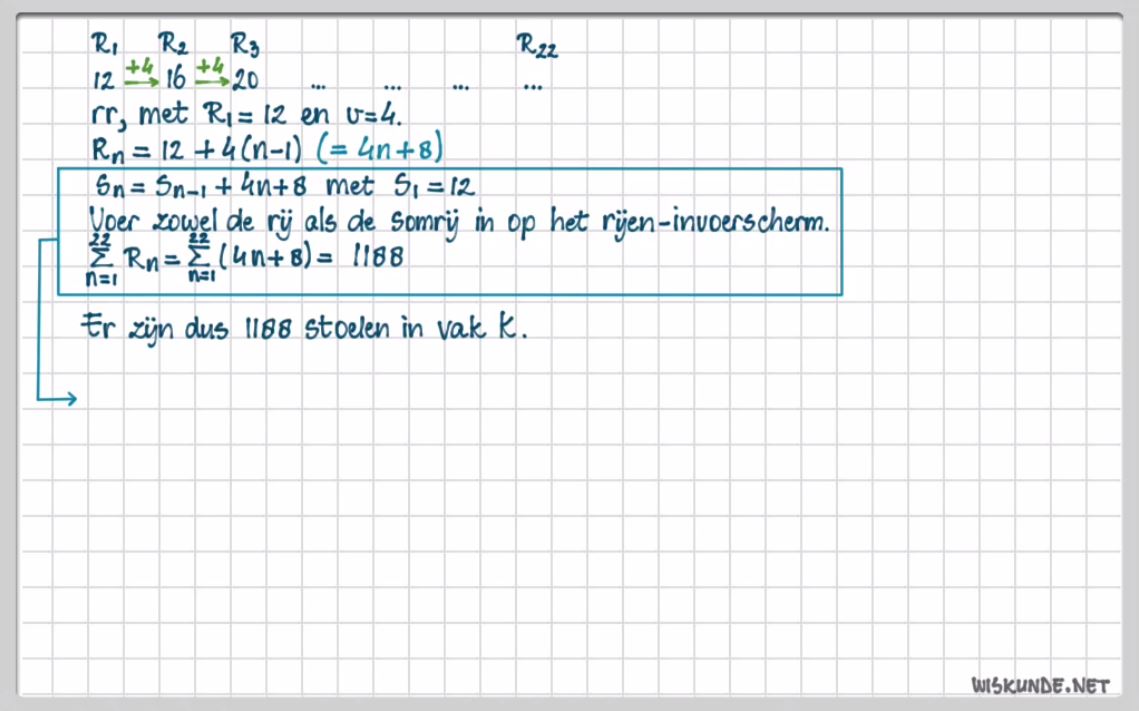 R₁ R₂ R₃ R₂₂
12 +4→ 16 +4→ 20 ... ... ... ...
rr, met R₁ = 12 en v=4.
Rₙ = 12 + 4(n-1) (= 4n+8)
Sₙ = Sₙ₋₁ + 4n+8 met S₁ = 12
Voer zowel de rij als de somrij in op het rijen-invoerscherm.
22 Σ n=1 Rₙ = 22 Σ n=1 (4n+8) = 1188
Er zijn dus 1188 stoelen in vak K.
WISKUNDE.NET